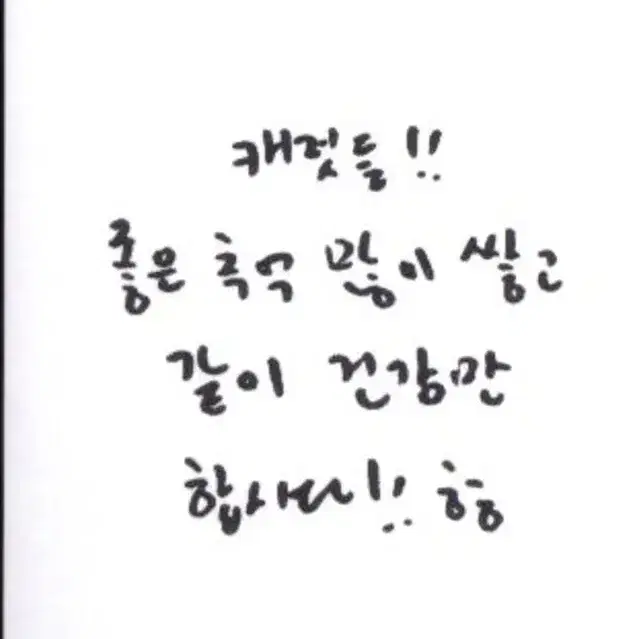 캐럿들!!
좋은 추억 많이 쌓고
같이 건강만
합시다!! 흐흐